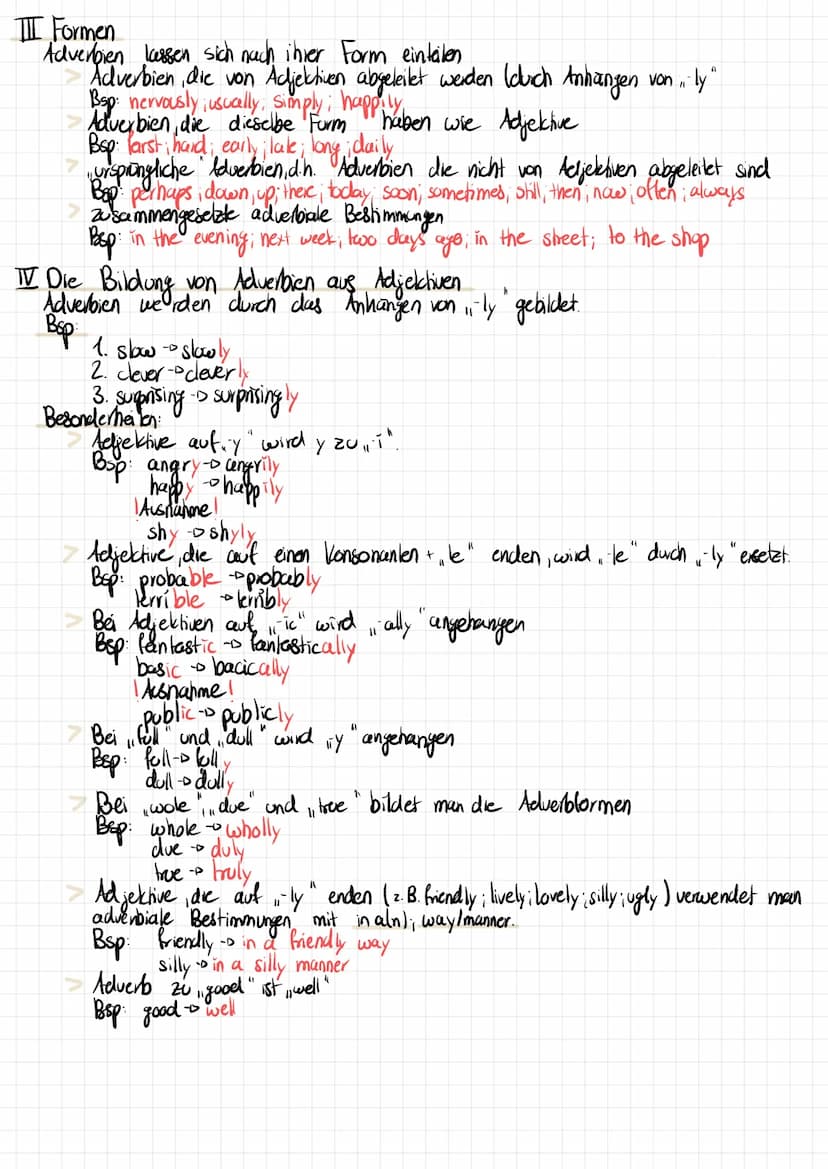 III Formen
Adverbien lassen sich nach ihrer Form einteilen
> Adverbien, die von Adjektiven abgeleitet werden (durch Anhängen von „-ly"
Bsp: nervously; usually; simply; happily
> Adverbien, die dieselbe Form haben wie Adjektive
Bsp: farst; hard; early; late; long; daily
> „ursprüngliche" Adverbien, d.h. Adverbien die nicht von Adjektiven abgeleitet sind
Bsp: perhaps; down; up; there; today; soon; sometimes, still, then, now, often; always
> zusammengesetzte adverbiale Bestimmungen
Bsp: in the evening; next week; two days ago; in the street; to the shop
IV Die Bildung von Adverbien aus Adjektiven
Adverbien werden durch das Anhängen von „-ly" gebildet.
Bsp:
1. slow -> slowly
2. clever -> cleverly
3. suprising -> surprisingly
Besonderheiten:
> Adjektive auf „-y" wird y zu „i".
Bsp: angry -> angrily
happy -> happily
!Ausnahme!
shy -> shyly
> Adjektive, die auf einen Konsonanten + „le" enden, wird „-le" durch „-ly" ersetzt.
Bsp: probable -> probably
terrible -> terribly
> Bei Adjektiven auf „-ic" wird „-ally" angehangen
Bsp: fantastic -> fantastically
basic -> bacically
!Ausnahme!
public -> publicly
> Bei „full" und „dull" wird „y" angehangen
Bsp: full -> fully
dull -> dully
> Bei „wole", „due" und „true" bildet man die Adverbformen
Bsp: whole -> wholly
due -> duly
true -> truly
> Adjektive, die auf „-ly" enden (z.B. friendly; lively; lovely; silly; ugly) verwendet man
adverbiale Bestimmungen mit in a(n); way/manner.
Bsp: friendly -> in a friendly way
silly -> in a silly manner
> Adverb zu „good" ist „well"
Bsp: good -> well